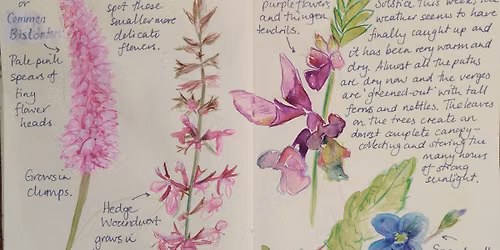 or
Common
Bistort
Pale pink
spears of
tiny
flower
heads.
Grows in
clumps.
spot these
smaller more
delicate
flowers.
Hedge
Woundwort
grows in
purple flowers
and thin green
tendrils.
Solstice this week, the
weather seems to have
finally caught up and
it has been very warm and
dry. Almost all the paths
are dry now and the verges
are 'greened-out' with tall
ferns and nettles. The leaves
on the trees create an
almost complete canopy-
collecting and storing the
many hours
of strong
sunlight.